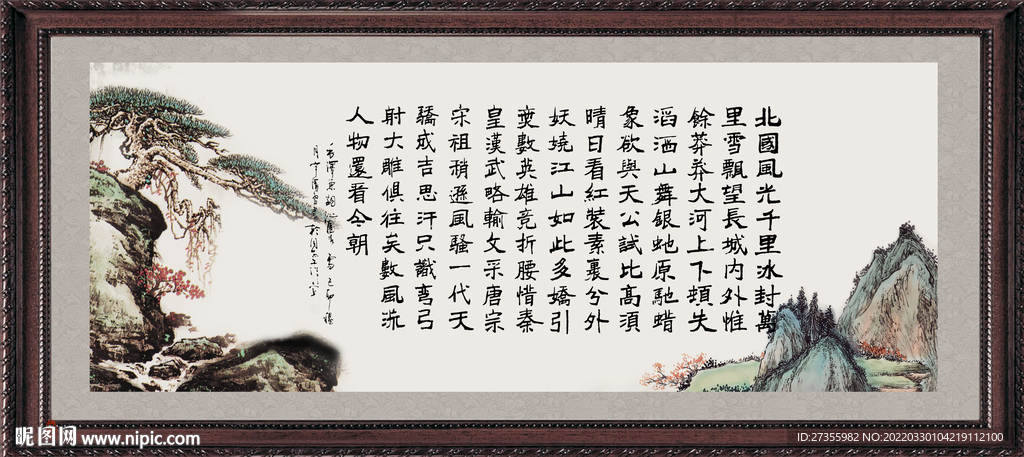 北國風光千里冰封萬
里雪飄望長城内外惟
餘莽莽大河上下頓失
滔洒山舞銀虵原馳蜡
象欲與天公試比高須
晴日看紅裝素裹兮外
妖嬈江山如此多嬌引
無數英雄竞折腰惜秦
皇漢武略輸文采唐宗
宋祖稍遜風騷一代天
驕成吉思汗只識彎弓
射大雕俱往矣數風流
人物還看今朝
毛澤東詞 雪己卯
昵图网 www.nipic.com
ID:27355982 NO:20220330104219112100